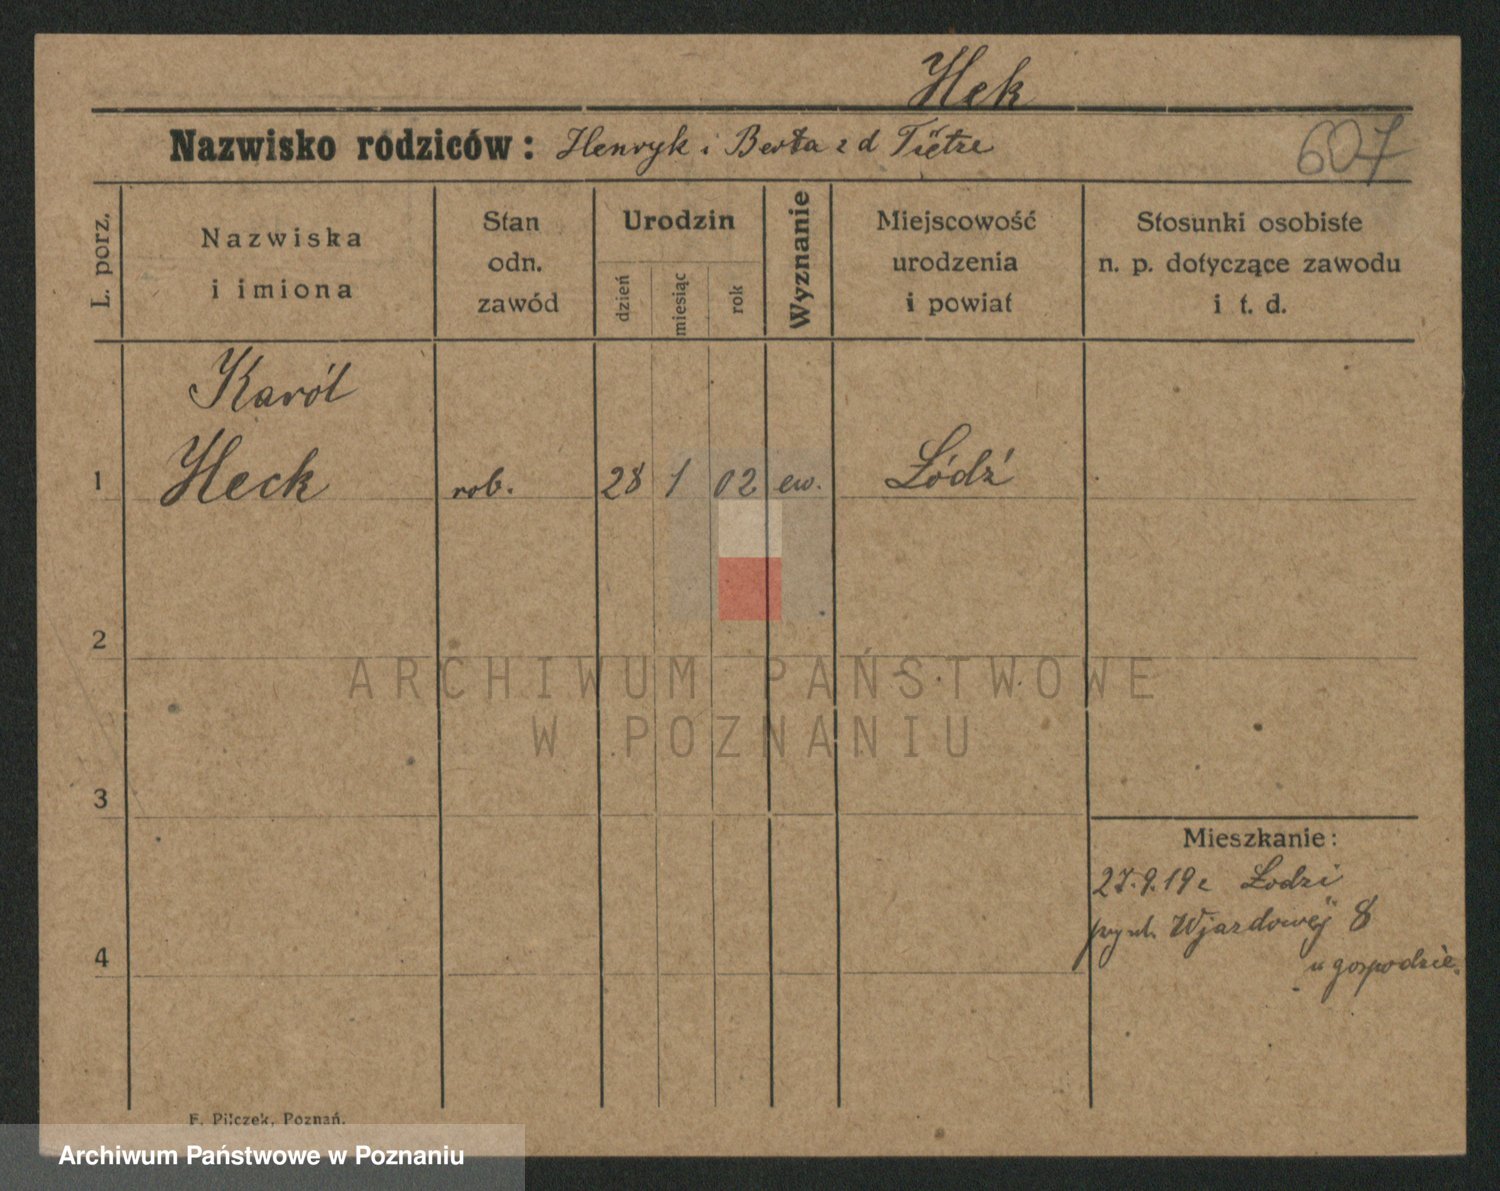 Hek
Nazwisko rodziców: Henryk i Berta z d Tietze
607
L. porz.
Nazwiska i imiona
Stan odn. zawód
Urodzin
dzień
miesiąc
rok
Wyznanie
Miejscowość urodzenia i powiat
Stosunki osobiste n. p. dotyczące zawodu i t. d.
Karól
1 Heck rob. 28 1 02 ew. Łódź
2
ARCHIWUM PAŃSTWOWE
W POZNANIU
3
Mieszkanie:
27.9.19 z Łodzi
przy ul. Wjazdowej 8
4
u gospodzie.
F. Pilczek, Poznań.
Archiwum Państwowe w Poznaniu